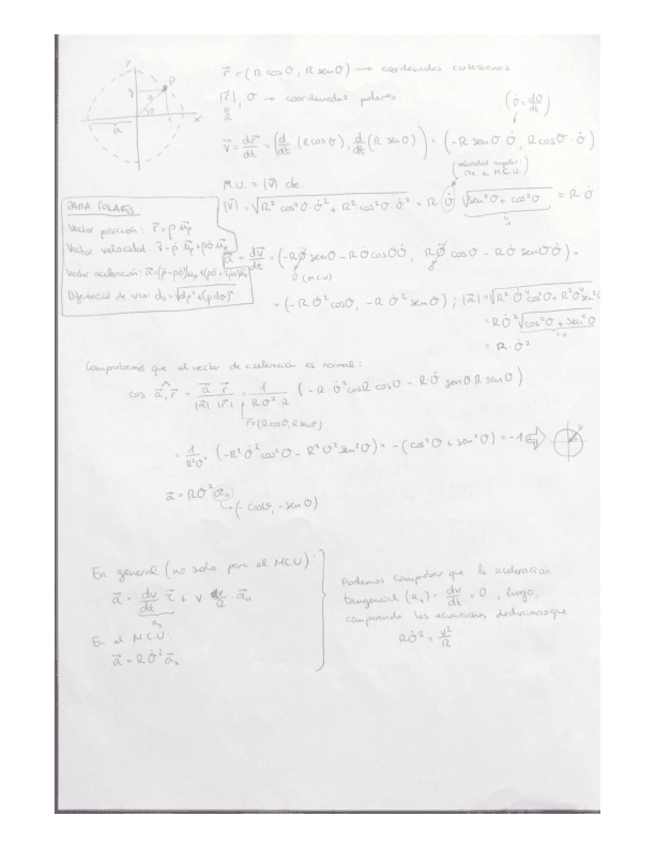 y
P
x
R
r⃗ = (R cosθ, R senθ) → coordenadas cartesianas
|r⃗|, θ → coordenadas polares.
R
(θ̇ = dθ/dt)
v⃗ = dr⃗/dt = (d/dt (R cosθ), d/dt (R senθ)) = (-R senθ θ̇, R cosθ · θ̇)
M.U. = |v⃗| cte.
(velocidad angular
|v⃗| = √(R² cos²θ·θ̇² + R² cos²θ·θ̇²) = R·θ̇ √(sen²θ + cos²θ) = R·θ̇
1
PARA POLARES
Vector posición: r⃗ = ρ u⃗ρ
Vector velocidad: v⃗ = ρ̇ u⃗ρ + ρθ̇
Vector aceleración: a⃗ =
Diferencial de arco: ds = √(dρ² + (ρdθ)²
a⃗ = dv⃗/dt = (-Rθ̈ senθ - Rθ̇ cosθθ̇, Rθ̈ cosθ - Rθ̇ senθθ̇) =
0 (MCU)
= (-Rθ̇² cosθ, -Rθ̇² senθ) ; |a⃗| = √(R²·θ̇⁴ cos²θ + R²θ̇⁴ sen²θ
= Rθ̇² √(cos²θ + sen²θ
= R·θ̇²
Comprobamos que el vector de aceleración es normal:
cos a⃗,r⃗ = a⃗·r⃗/|a⃗|·|r⃗| = 1/Rθ̇²·R (-R·θ̇² cosR cosθ - R·θ̇ senθ R senθ)
r⃗ = (R cosθ, R senθ)
= 1/R²θ̇² (-R²θ̇² cos²θ - R²θ̇² sen²θ) = -(cos²θ + sen²θ) = -1 ⇨
a⃗ = Rθ̇² a⃗ₙ
(-cosθ, -senθ)
En general (no solo para el MCU):
a⃗ = dv/dt τ⃗ + v · a⃗ₙ
En el MCU:
a⃗ = Rθ̇² a⃗ₙ
Podemos comprobar que la aceleración
tangencial = dv/dt = 0, luego,
comparando las ecuaciones deducimos que
Rθ̇² = v²/R